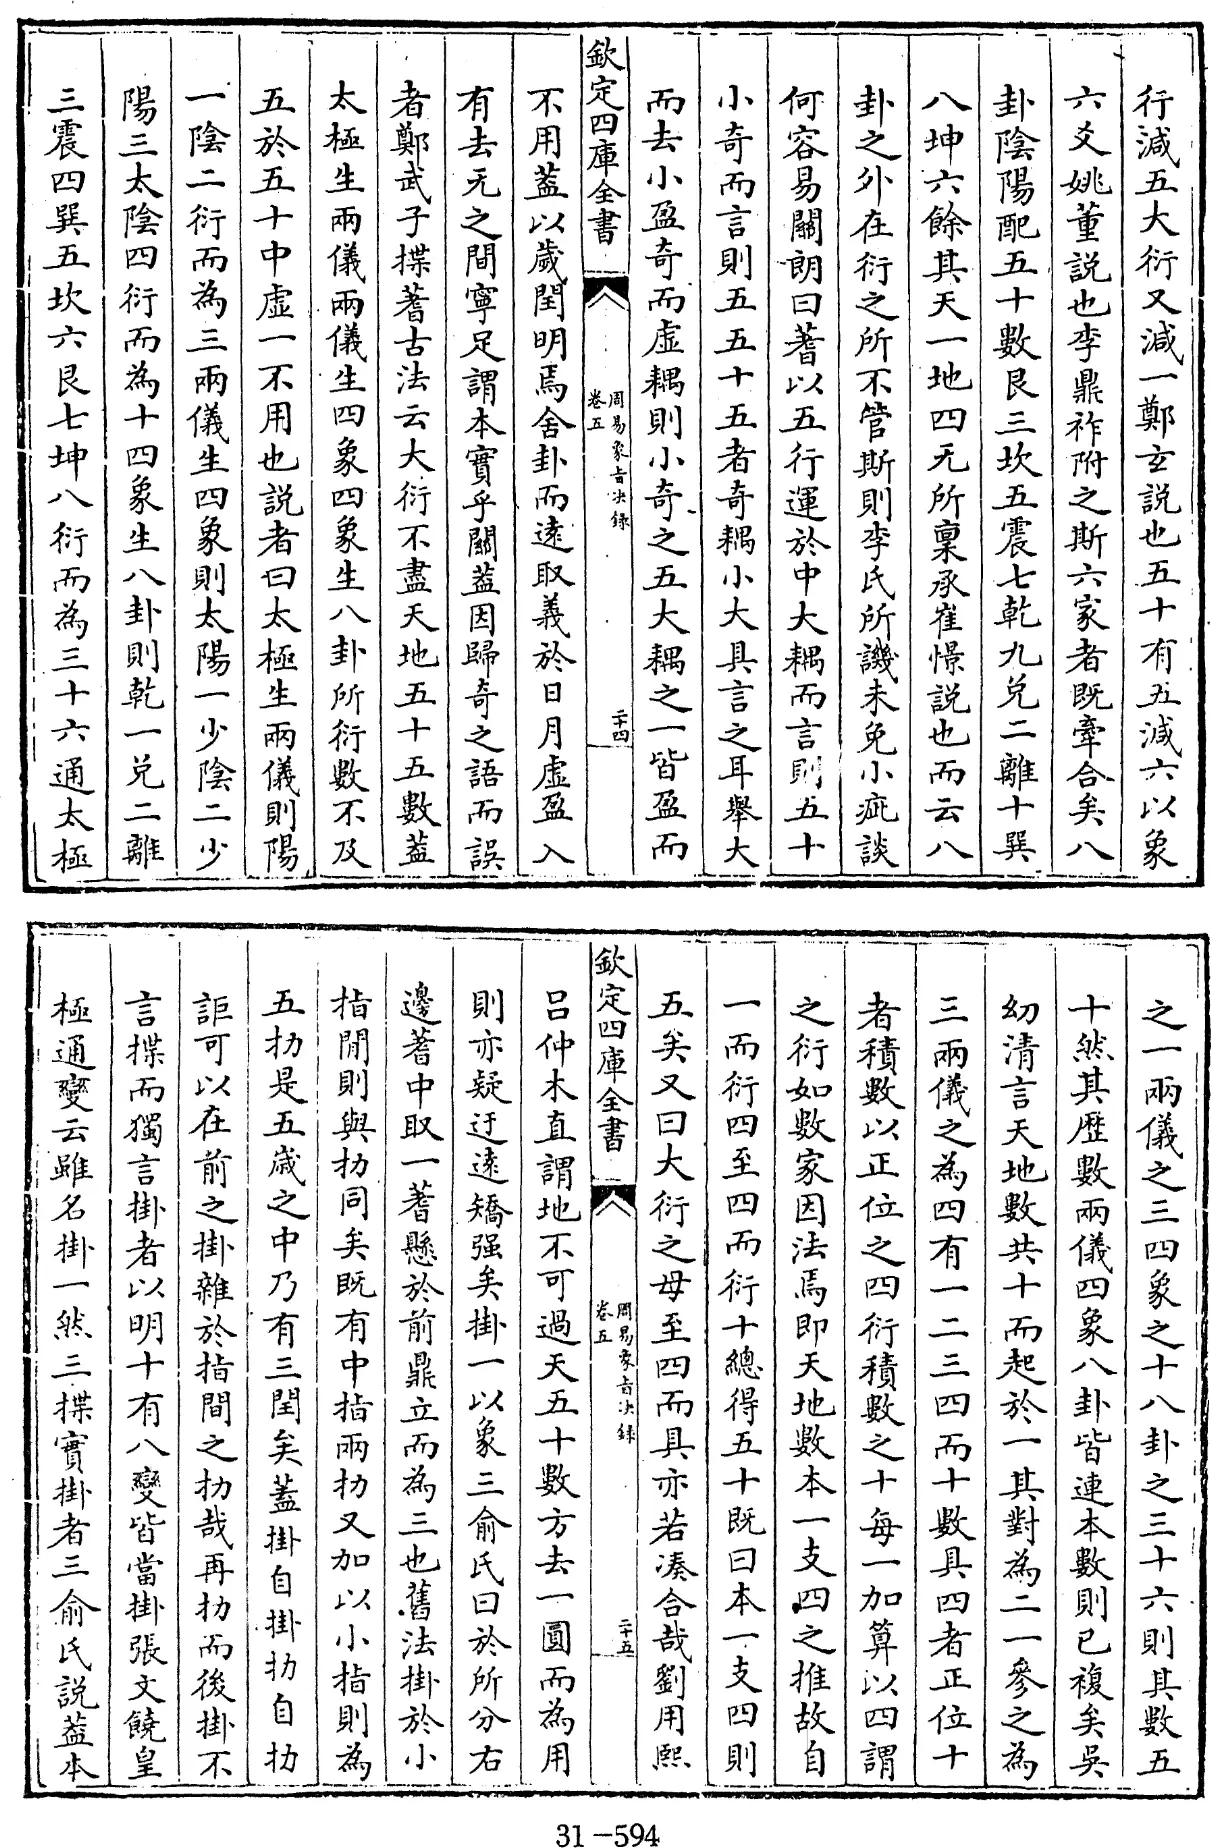 行減五大衍又減一鄭玄説也五十有五減六以象
六爻姚董説也李鼎祚附之斯六家者既牽合矣八
卦陰陽配五十數艮三坎五震七乾九兌二離十巽
八坤六餘其天一地四无所稟承崔憬説也而云八
卦之外在衍之所不管斯則李氏所譏未免小疵談
何容易關朗曰蓍以五行運於中大耦而言則五十
小奇而言則五五十五者奇耦小大具言之耳舉大
而去小盈奇而虛耦則小奇之五大耦之一皆盈而
欽定四庫全書
周易象旨決録
卷五
二十四
不用蓋以歲閏明焉舍卦而遠取義於日月虛盈入
有去无之間寧足謂本實乎關蓋因歸奇之語而誤
者鄭武子揲蓍古法云大衍不盡天地五十五數蓋
太極生兩儀兩儀生四象四象生八卦所衍數不及
五於五十中虛一不用也説者曰太極生兩儀則陽
一陰二衍而為三兩儀生四象則太陽一少陰二少
陽三太陰四衍而為十四象生八卦則乾一兌二離
三震四巽五坎六艮七坤八衍而為三十六通太極
之一兩儀之三四象之十八卦之三十六則其數五
十然其歷數兩儀四象八卦皆連本數則已複矣吳
幼清言天地數共十而起於一其對為二一參之為
三兩儀之為四有一二三四而十數具四者正位十
者積數以正位之四衍積數之十每一加算以四謂
之衍如數家因法焉即天地數本一支四之推故自
一而衍四至四而衍十總得五十既曰本一支四則
五矣又曰大衍之母至四而具亦若湊合哉劉用熙
欽定四庫全書
周易象旨決録
卷五
二十五
呂仲木直謂地不可過天五十數方去一圓而為用
則亦疑迂遠矯强矣掛一以象三俞氏曰於所分右
邊蓍中取一蓍懸於前鼎立而為三也舊法掛於小
指間則與扐同矣既有中指兩扐又加以小指則為
五扐是五歲之中乃有三閏矣蓋掛自掛扐自扐
詎可以在前之掛雜於指間之扐哉再扐而後掛不
言揲而獨言掛者以明十有八變皆當掛張文饒皇
極通變云雖名掛一然三揲實掛者三俞氏説蓋本
31-594